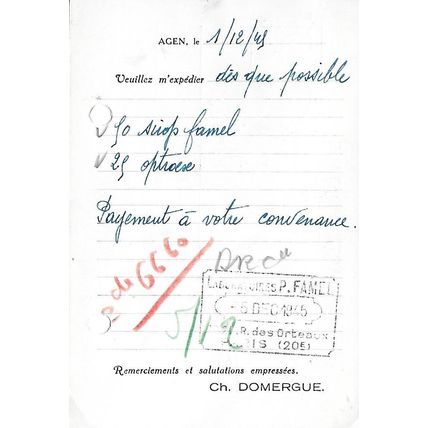 AGEN, le 1/12/45
Veuillez m'expédier dès que possible
50 sirop famel
25 optraex
Payement à votre convenance.
6660
Laboratoires P. FAMEL
-5 DEC 1945
R. des Orteaux
IS (20E)
5/12
Remerciements et salutations empressées.
Ch. DOMERGUE.